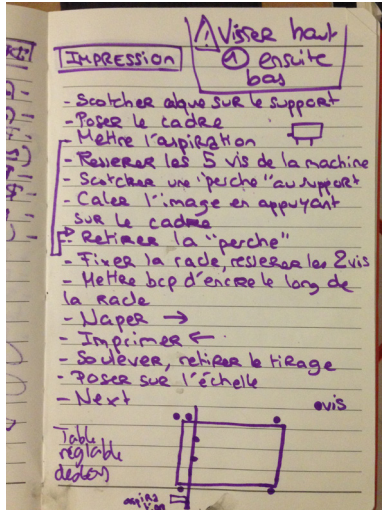 ⚠ Visser haut
① ensuite
bas
IMPRESSION
- Scotcher alque sur le support
- Poser le cadre
- Mettre l'aspiration
- Resserer les 5 vis de la machine
- Scotcher une "perche" au support
- Caler l'image en appuyant
sur le cadre
- Retirer la "perche"
- Fixer la racle, resserer les 2 vis
- Mettre bcp d'encre le long de
la racle
- Naper →
- Imprimer ←
- Soulever, retirer le tirage
- Poser sur l'échelle
- Next
• vis
Table
réglable
aspira
tion